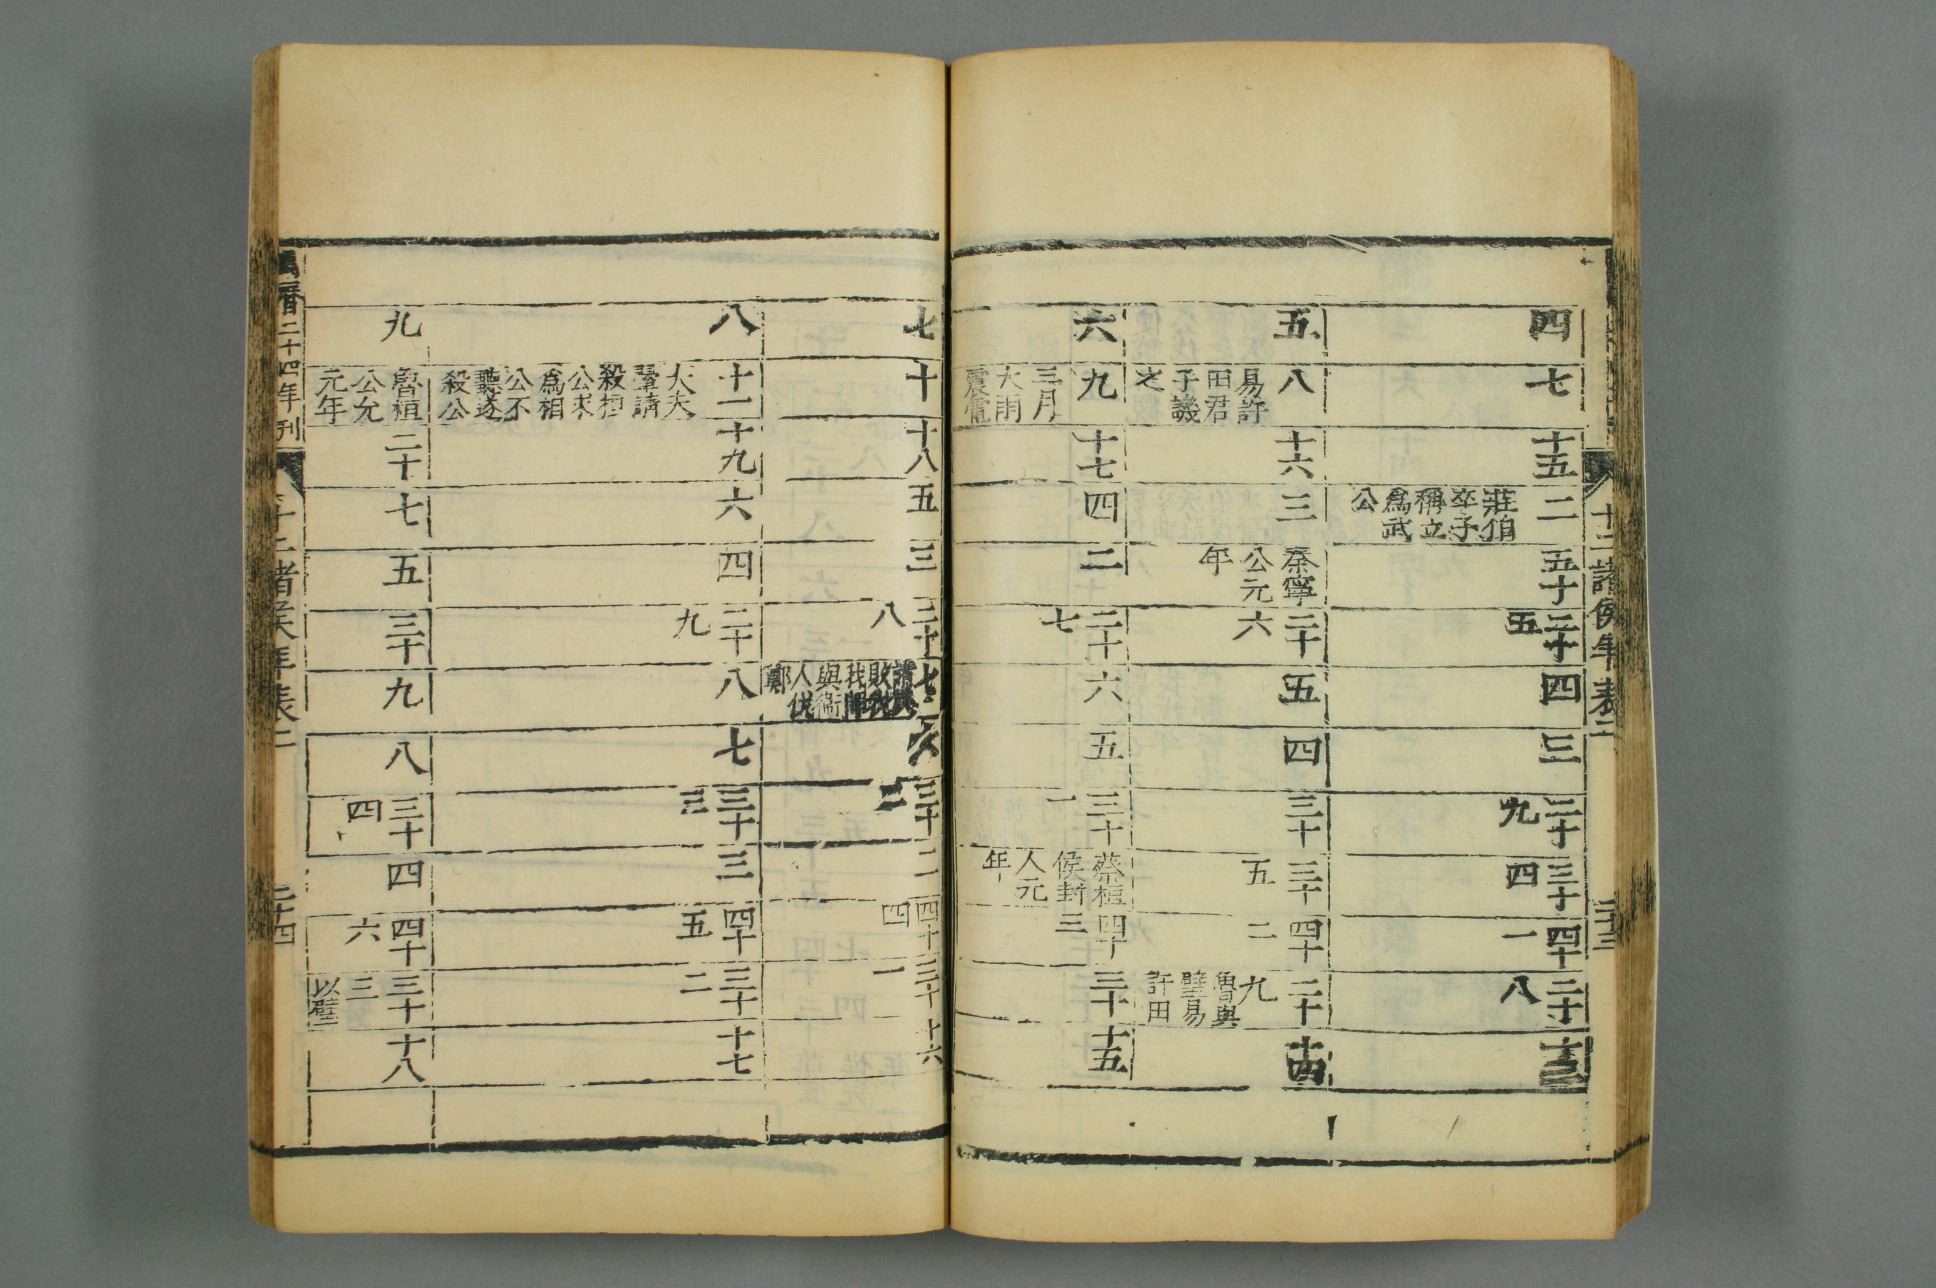 十二諸侯年表二
二十三
四
七
十五
二 莊伯卒子稱立爲武公
五十
二十五
四
三
二十九
三十四
四十一
二十八
十三
五
八 易許田君子譏之
十六
三
秦寧公元年
二十六
五
四
三十
三十五
四十二
二十九 魯與璧易許田
十四
六
九 三月大雨震電
十七
四
二
二十七
六
五
三十一
蔡桓侯封人元年
四十三
三十
十五
七
十
十八
五
三
二十八
七 諸侯敗我我師與衛人伐鄭
六
三十二
二
四十四
三十一
十六
八
十一 大夫翬請殺桓公求爲相公不聽遂殺公
十九
六
四
二十九
八
七
三十三
三
四十五
三十二
十七
九
魯桓公允元年
二十
七
五
三十
九
八
三十四
四
四十六
三十三 以璧
十八
萬曆二十四年刊
十二諸侯年表二
二十四